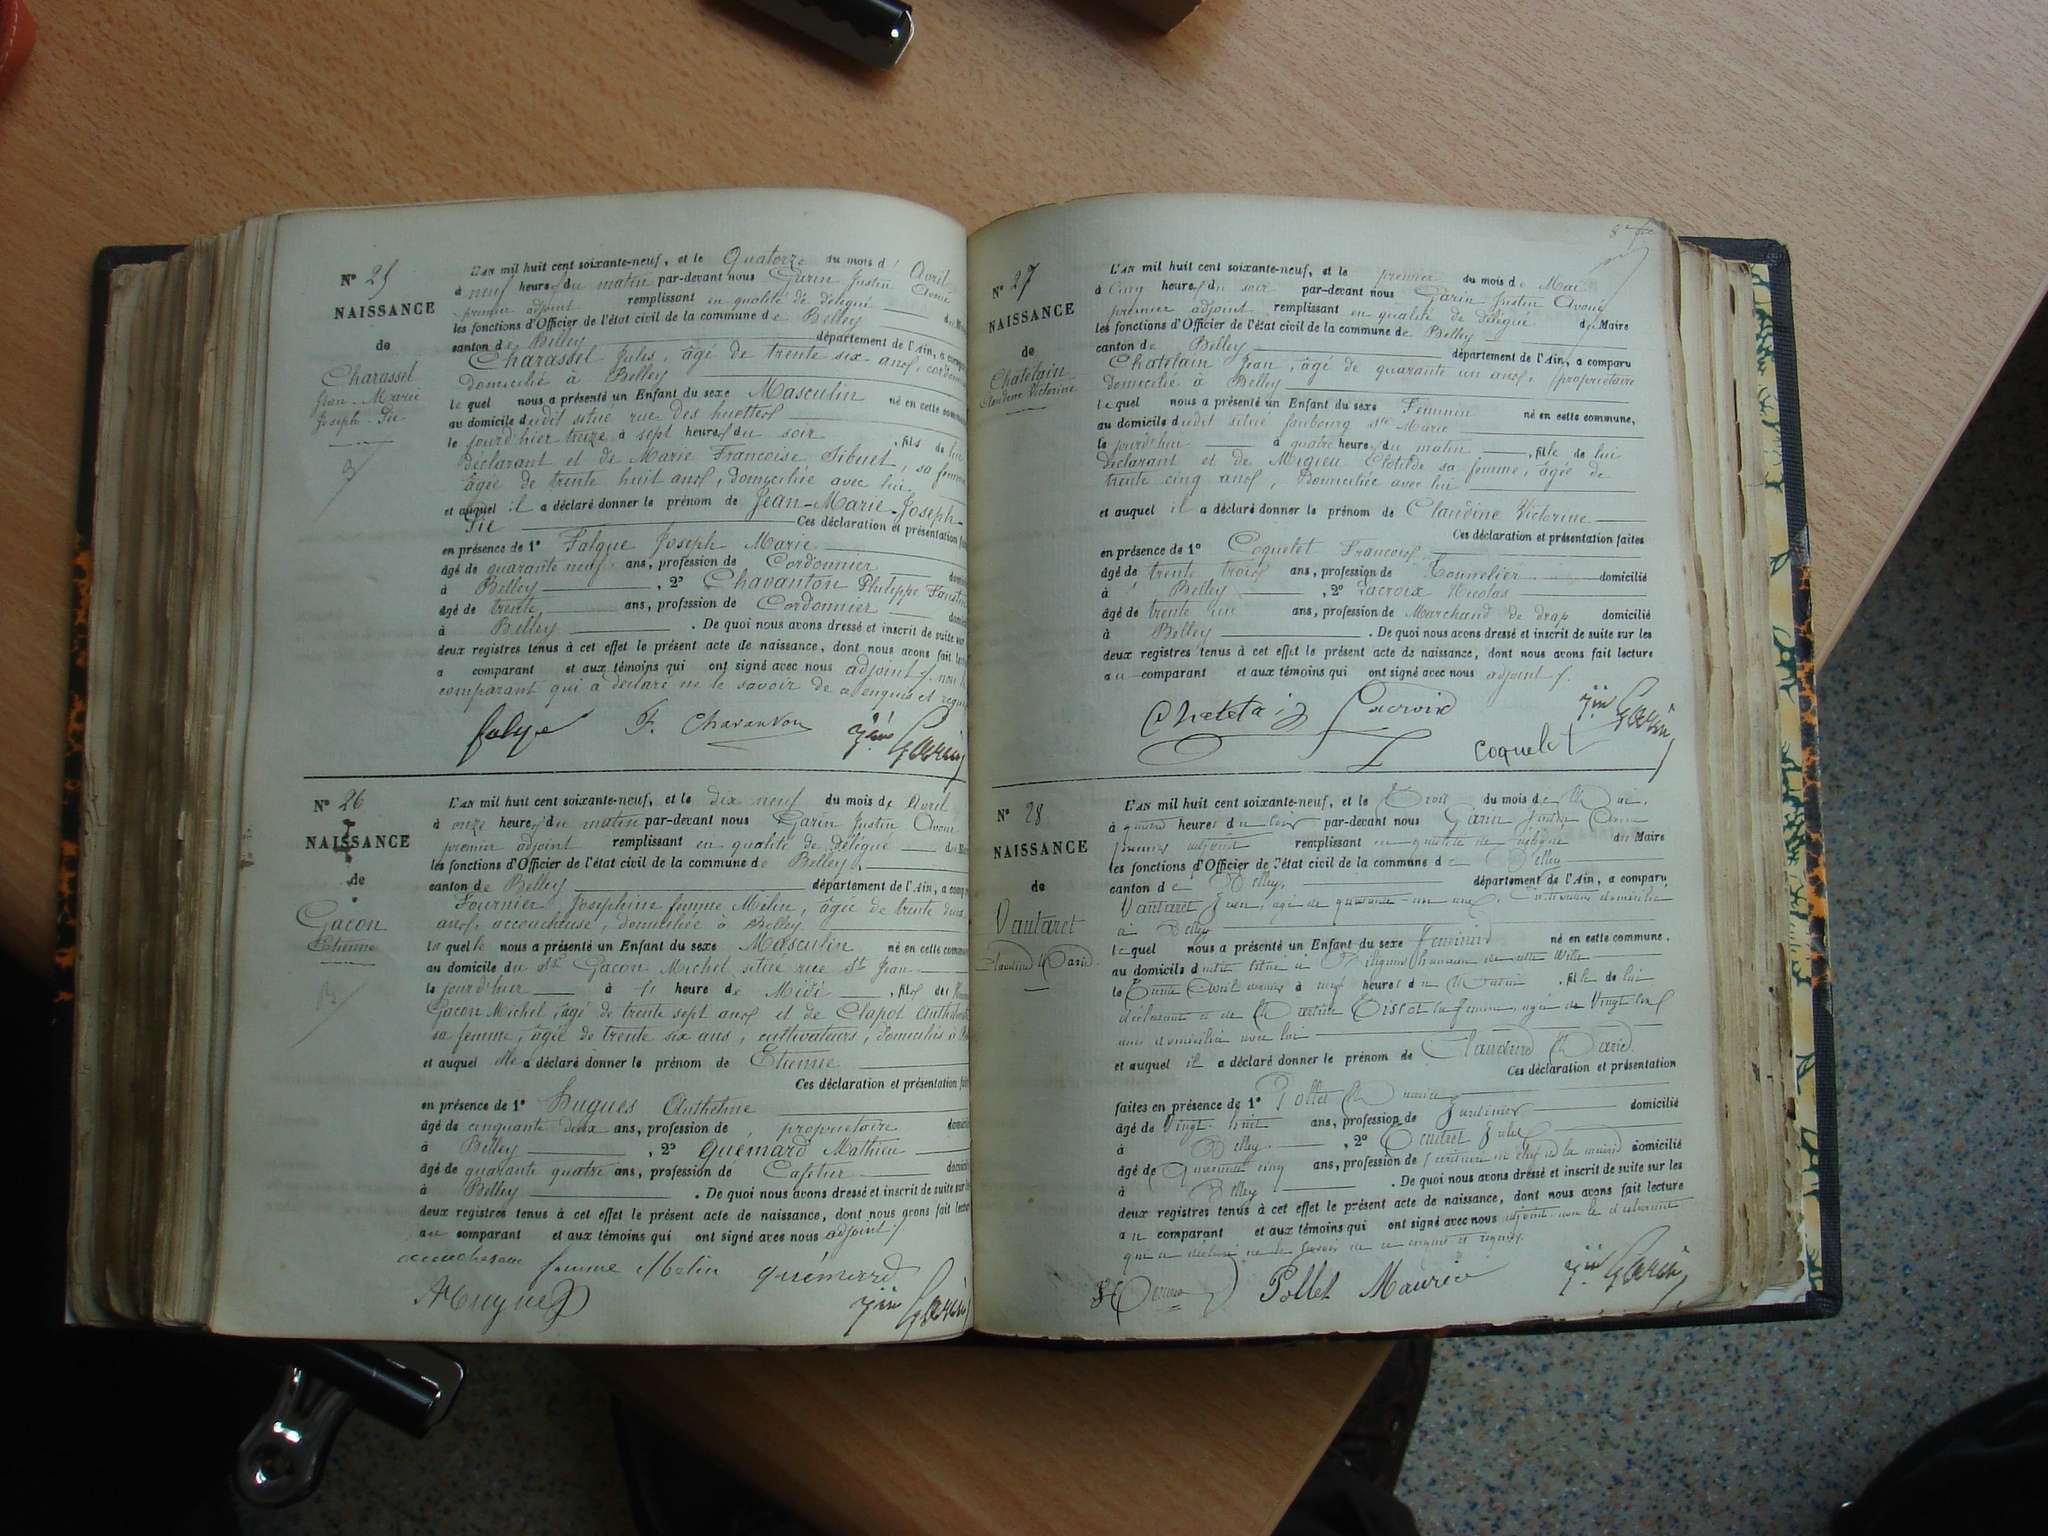 N° 25
NAISSANCE
de
Charassel
Jean-Marie
Joseph-Pie
L'AN mil huit cent soixante-neuf, et le Quatorze du mois d' Avril
à neuf heures du matin par-devant nous Garin Justin Avoué
premier adjoint remplissant en qualité de délégué du
les fonctions d'Officier de l'état civil de la commune de Belley
canton de Belley département de l'Ain, a comparu
Charassel Jules, âgé de trente six ans, cordonnier
domicilié à Belley
lequel nous a présenté un Enfant du sexe Masculin né en cette commune
au domicile dudit situé rue des
le jourd'hier treize à sept heures du soir, fils de lui
déclarant et de Marie Françoise Sibuet, sa femme
âgée de trente huit ans, domiciliée avec lui
et auquel il a déclaré donner le prénom de Jean-Marie-Joseph-
Pie Ces déclaration et présentation
en présence de 1° Falque Joseph Marie
âgé de quarante neuf ans, profession de Cordonnier
à Belley, 2° Chavanton Philippe
âgé de trente ans, profession de Cordonnier
à Belley. De quoi nous avons dressé et inscrit de suite sur
deux registres tenus à cet effet le présent acte de naissance, dont nous avons fait
a comparant et aux témoins qui ont signé avec nous adjoint f. non le
comparant qui a déclaré ne le savoir de ce enquis et requis
falque F. Chavanton Jin Garin
N° 26
NAISSANCE
de
Gacon
Etienne
L'AN mil huit cent soixante-neuf, et le dix neuf du mois de Avril
à onze heures du matin par-devant nous Garin Justin Avoué
premier adjoint remplissant en qualité de délégué du
les fonctions d'Officier de l'état civil de la commune de Belley
canton de Belley département de l'Ain, a
Fournier Josephine femme Melin, âgée de trente deux
ans, accoucheuse, domiciliée à Belley
laquelle nous a présenté un Enfant du sexe Masculin né en cette
au domicile du Sr Gacon Michel situé rue St Jean
le jourd'hier à heure de Midi, fils de
Gacon Michel, âgé de trente sept ans et de Clapot
sa femme, âgée de trente six ans, cultivateurs, domiciliés à
et auquel elle a déclaré donner le prénom de Etienne
Ces déclaration et présentation
en présence de 1° Hugues Anthelme
âgé de cinquante deux ans, profession de propriétaire
à Belley, 2° Quémard Mathieu
âgé de quarante quatre ans, profession de Cafetier
à Belley. De quoi nous avons dressé et inscrit de suite sur
deux registres tenus à cet effet le présent acte de naissance, dont nous avons fait
au comparant et aux témoins qui ont signé avec nous adjoint f.
accucheseu femme Melin quémerd
AHugues Jin Garin
N° 27
NAISSANCE
de
Chatelain
Claudine Victorine
L'AN mil huit cent soixante-neuf, et le premier du mois de Mai
à cinq heures du soir par-devant nous Garin Justin Avoué
premier adjoint remplissant en qualité de délégué du Maire
les fonctions d'Officier de l'état civil de la commune de Belley
canton de Belley département de l'Ain, a comparu
Chatelain Jean, âgé de quarante un ans, propriétaire
domicilié à Belley
lequel nous a présenté un Enfant du sexe Féminin né en cette commune,
au domicile dudit situé faubourg Ste Marie
le jourd'hui à quatre heures du matin, fille de lui
déclarant et de Migieu Clotilde sa femme, âgée de
trente cinq ans, Domiciliée avec lui
et auquel il a déclaré donner le prénom de Claudine Victorine
Ces déclaration et présentation faites
en présence de 1° Coquelet François
âgé de trente trois ans, profession de Tonnelier domicilié
à Belley, 2° Lacroix Nicolas
âgé de trente un ans, profession de Marchand de drap domicilié
à Belley. De quoi nous avons dressé et inscrit de suite sur les
deux registres tenus à cet effet le présent acte de naissance, dont nous avons fait lecture
au comparant et aux témoins qui ont signé avec nous adjoint f.
Chatelain Lacroix Jin Garin
coquelet
N° 28
NAISSANCE
de
Vautaret
Claudine Marie
L'AN mil huit cent soixante-neuf, et le Trois du mois de Mai,
à heures du soir par-devant nous Garin Justin Avoué
premier adjoint remplissant en qualité de délégué du Maire
les fonctions d'Officier de l'état civil de la commune de Belley
canton de Belley, département de l'Ain, a comparu
Vautaret Jean, âgé de quarante un ans, Cultivateur domicilié
à Belley
lequel nous a présenté un Enfant du sexe Féminin né en cette commune,
au domicile dudit situé à hameau de cette Ville
le à heures du Matin, fille de lui
déclarant et de Tissot sa femme, âgée de Vingt
ans domiciliée avec lui
et auquel il a déclaré donner le prénom de Claudine Marie
Ces déclaration et présentation
faites en présence de 1° Pollet Maurice
âgé de Vingt-huit ans, profession de domicilié
à Belley, 2° Jules
âgé de Quarante cinq ans, profession de de la mairie domicilié
à Belley. De quoi nous avons dressé et inscrit de suite sur les
deux registres tenus à cet effet le présent acte de naissance, dont nous avons fait lecture
au comparant et aux témoins qui ont signé avec nous adjoint non le déclarant
qui a déclaré ne le savoir de ce enquis et requis.
Pollet Maurice Jin Garin